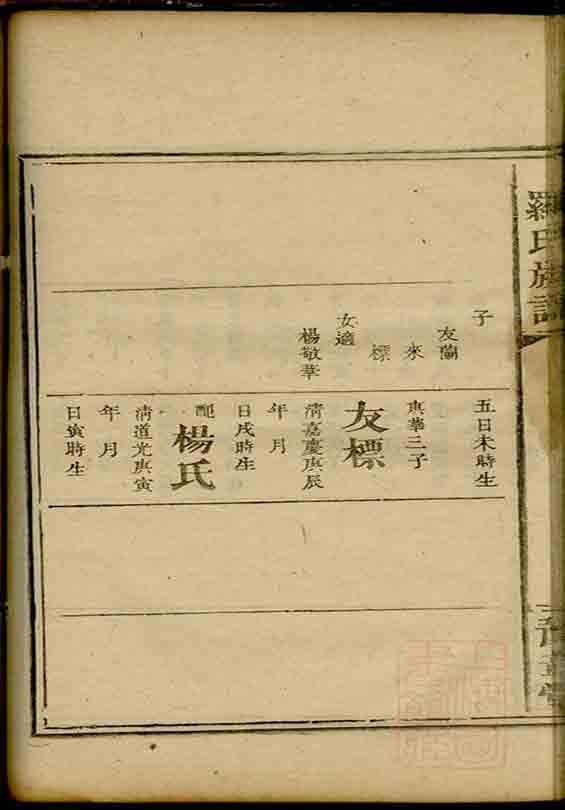 羅氏族譜
子
友蘭
來
標
女適
楊敬華
五日未時生
典華三子
友標
清嘉慶庚辰
年 月
日戌時生
配楊氏
清道光庚寅
年 月
日寅時生